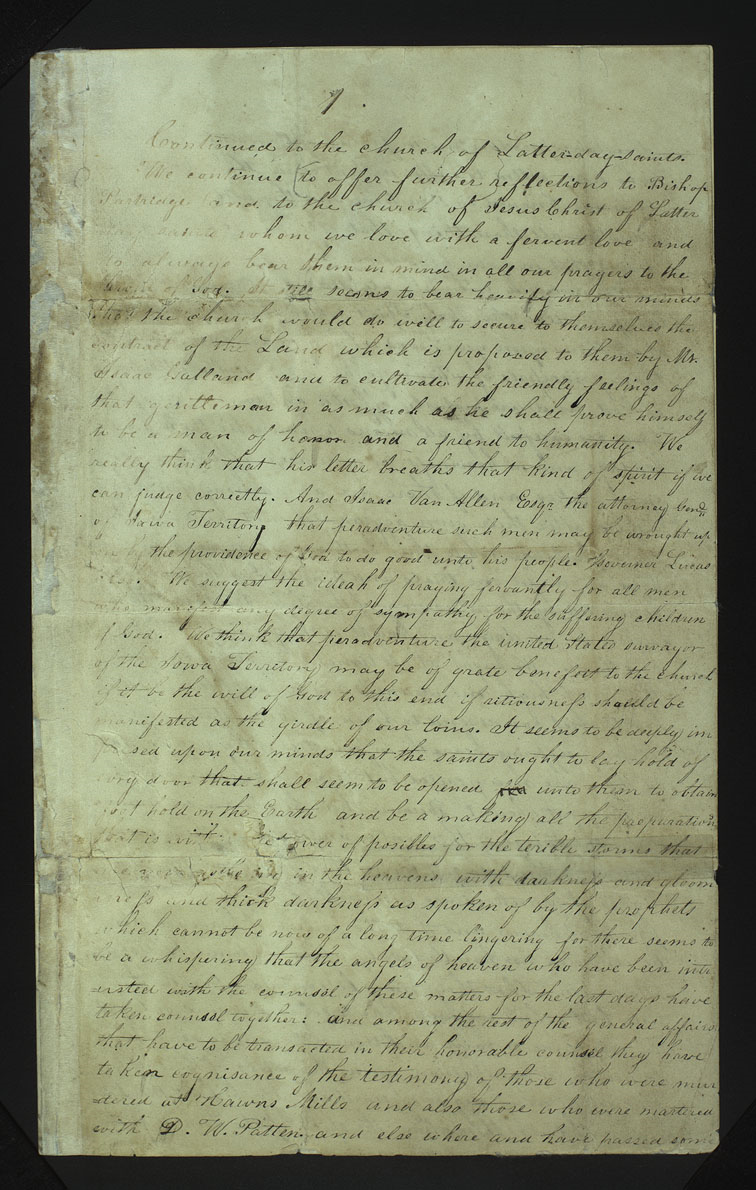 1.
Continued to the church of Latter-day-saints.
We continue to offer further reflections to Bishop
Partridge and to the church of Jesus Christ of Latter
day saints whom we love with a fervent love and
do always bear them in mind in all our prayers to the
throne of God. It still seems to bear heavily in our minds
that the church would do well to secure to themselves the
contract of the Land which is proposed to them by Mr.
Isaac Galland and to cultivate the friendly feelings of
that gentleman in as much as he shall prove himself
to be a man of honor and a friend to humanity. We
really think that his letter breaths that kind of spirit if we
can judge correctly. And Isaac Van Allen Esqr the attorney
of Iawa Territory that peradventure such men may be wrought up
on by the providence of God to do good unto his people. Governer Lucas
also. We suggest the ideah of praying fervantly for all men
who manifest any degree of sympathy for the suffering children
of God. We think that peradventure the united States survayor
of the Iowa Territory may be of grate benefitt to the church
if it be the will of God to this end if ritiousness should be
manifested as the girdle of our loins. It seems to be deeply im
pressed upon our minds that the saints ought to lay hold of
every door that shall seem to be opened unto them to obtain
foot hold on the Earth and be a making all the preparations
that is with power of posibles for the terible storms that
are now in the heavens with darkness and gloom
iness and thick darkness as spoken of by the prophets
which cannot be now of a long time lingering for there seems to
be a whispering that the angels of heaven who have been intr
usted with the counsel of these matters for the last days have
taken counsel together: and among the rest of the general affairs
that have to be transacted in their honorable counsel they have
taken cognisance of the testimony of those who were mur
dered at Hawns Mills and also those who were martered
with D. W. Patten, and else where and have passed some